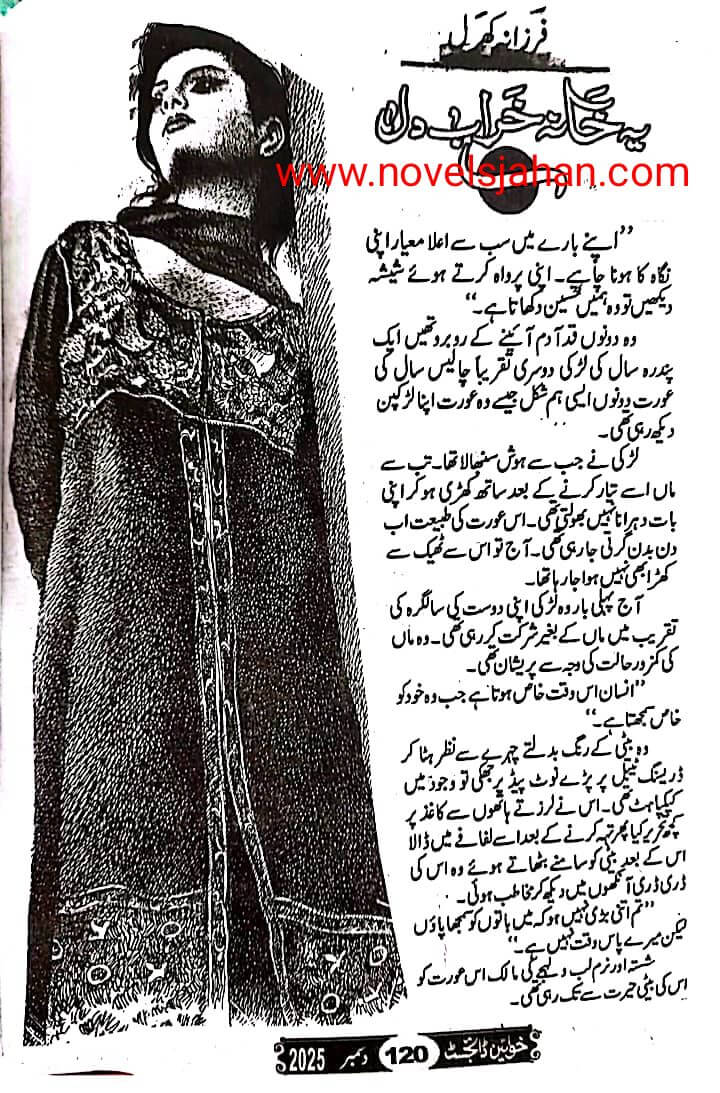 فرزانہ کھرل
یہ خانہ خراب دل
www.novelsjahan.com
”اپنے بارے میں سب سے اعلا معیار اپنی
نگاہ کا ہونا چاہیے۔ اپنی پرواہ کرتے ہوئے شیشہ
دیکھیں تو وہ ہمیں حسین دکھاتا ہے۔“
وہ دونوں قد آدم آئینے کے روبرو تھیں ایک
پندرہ سال کی لڑکی دوسری تقریباً چالیس سال کی
عورت دونوں ایسی ہم شکل جیسے وہ عورت اپنا لڑکپن
دیکھ رہی تھی۔
لڑکی نے جب سے ہوش سنبھالا تھا۔ تب سے
ماں اسے تیار کرنے کے بعد ساتھ کھڑی ہو کر اپنی
بات دہرانا نہیں بھولتی تھی۔ اس عورت کی طبیعت اب
دن بدن گرتی جا رہی تھی۔ آج تو اس سے ٹھیک سے
کھڑا بھی نہیں ہوا جا رہا تھا۔
آج پہلی بار وہ لڑکی اپنی دوست کی سالگرہ کی
تقریب میں ماں کے بغیر شرکت کر رہی تھی۔ وہ ماں
کی کمزور حالت کی وجہ سے پریشان تھی۔
”انسان اس وقت خاص ہوتا ہے جب وہ خود کو
خاص سمجھتا ہے۔“
وہ بیٹی کے رنگ بدلتے چہرے سے نظر ہٹا کر
ڈریسنگ ٹیبل پر پڑے نوٹ پیڈ پر جھکی تو وجود میں
کپکپاہٹ تھی۔ اس نے لرزتے ہاتھوں سے کاغذ پر
کچھ تحریر کیا پھر تہہ کرنے کے بعد اسے لفافے میں ڈالا
اس کے بعد بیٹی کو سامنے بٹھاتے ہوئے وہ اس کی
ڈری ڈری آنکھوں میں دیکھ کر مخاطب ہوئی۔
”تم اتنی بڑی نہیں ہو کہ میں باتوں کو سمجھا پاؤں
لیکن میرے پاس وقت نہیں ہے۔“
شستہ اور نرم لب و لہجے کی مالک اس عورت کو
اس کی بیٹی حیرت سے تک رہی تھی۔
خواتین ڈائجسٹ 120 دسمبر 2025